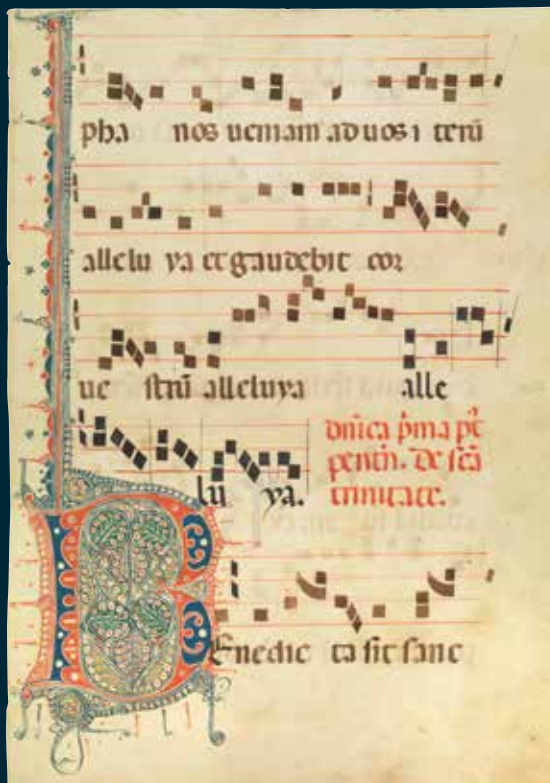 pha nos ueniam ad uos i terū
allelu ya et gaudebit cor
ue strū alleluya alle
lu ya.
dn̄ica p̄ma pꝰt
pentħ. De sc̄ā
trinitate.
Benedic ta sit sanc